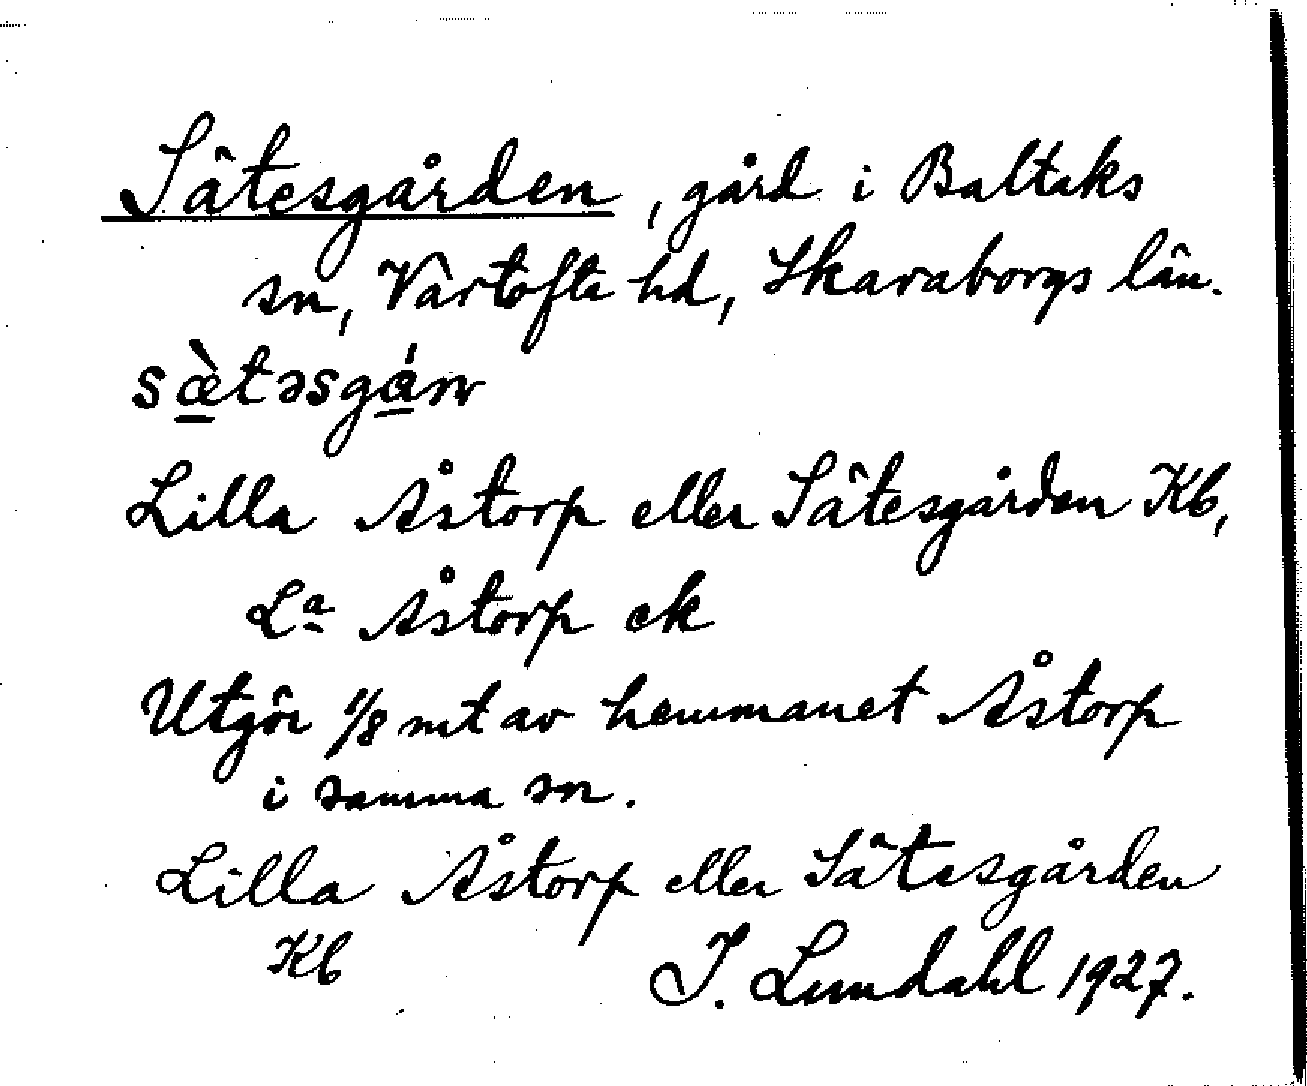 Sätesgården, gård i Baltaks
sn, Vartofta hd, Skaraborgs län.
sæ̠̀təsgá̠rn
Lilla Åstorp eller Sätesgården Kb,
Lª Åstorp ek
Utgör 1/8 mt av hemmanet Åstorp
i samma sn.
Lilla Åstorp eller Sätesgården
Kb I. Lundahl 1927.